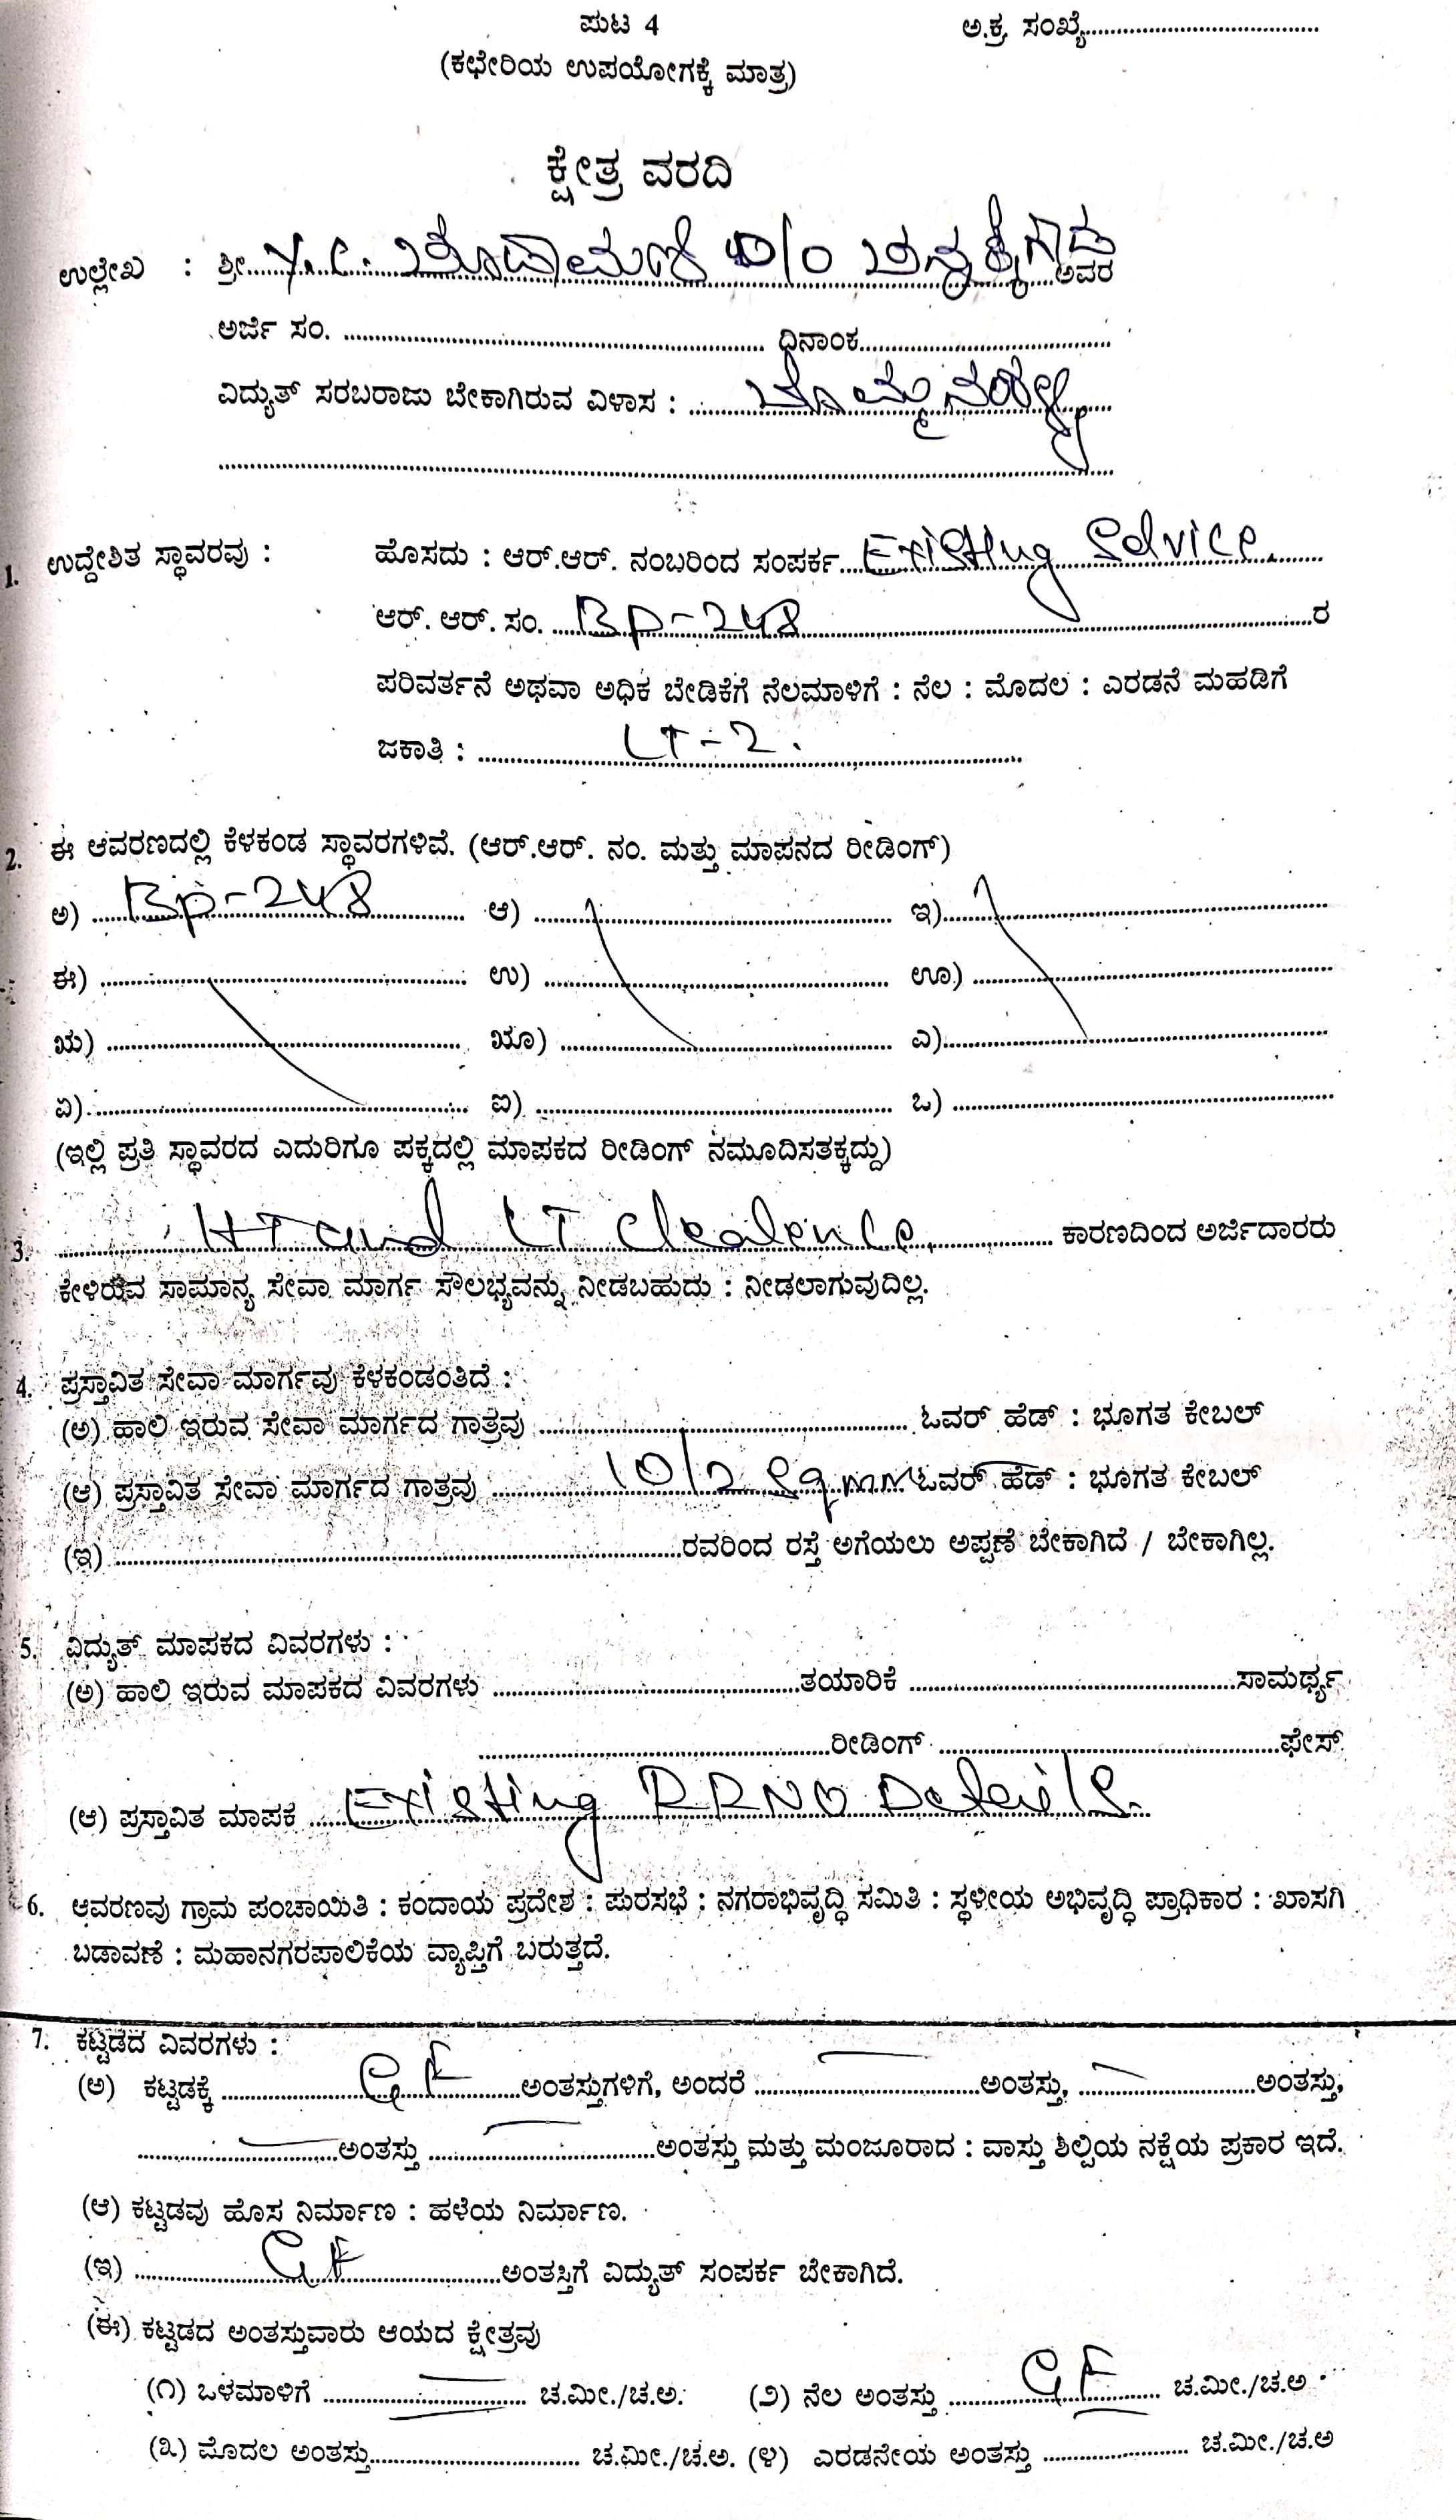 ಪುಟ 4
ಅ.ಕ್ರ ಸಂಖ್ಯೆ....................
(ಕಛೇರಿಯ ಉಪಯೋಗಕ್ಕೆ ಮಾತ್ರ)
ಕ್ಷೇತ್ರ ವರದಿ
ಉಲ್ಲೇಖ : ಶ್ರೀ.... Y.C. D/o .... ಅವರ
ಅರ್ಜಿ ಸಂ. .................... ಧಿನಾಂಕ....................
ವಿದ್ಯುತ್ ಸರಬರಾಜು ಬೇಕಾಗಿರುವ ವಿಳಾಸ : ....................
1. ಉದ್ದೇಶಿತ ಸ್ಥಾವರವು : ಹೊಸದು : ಆರ್.ಆರ್. ನಂಬರಿಂದ ಸಂಪರ್ಕ.. Existing Service
ಆರ್. ಆರ್. ಸಂ. .... BP-248 ....................ರ
ಪರಿವರ್ತನೆ ಅಥವಾ ಅಧಿಕ ಬೇಡಿಕೆಗೆ ನೆಲಮಾಳಿಗೆ : ನೆಲ : ಮೊದಲ : ಎರಡನೆ ಮಹಡಿಗೆ
ಜಕಾತಿ : .......... LT-2. ..........
2. ಈ ಆವರಣದಲ್ಲಿ ಕೆಳಕಂಡ ಸ್ಥಾವರಗಳಿವೆ. (ಆರ್.ಆರ್. ನಂ. ಮತ್ತು ಮಾಪನದ ರೀಡಿಂಗ್)
ಅ) .... BP-248 .......... ಆ) .................... ಇ)....................
ಈ) .................... ಉ) .................... ಊ) ....................
ಋ) .................... ೠ) .................... ಎ)....................
ಏ)..................... ಐ) .................... ಒ) ....................
(ಇಲ್ಲಿ ಪ್ರತಿ ಸ್ಥಾವರದ ಎದುರಿಗೂ ಪಕ್ಕದಲ್ಲಿ ಮಾಪಕದ ರೀಡಿಂಗ್ ನಮೂದಿಸತಕ್ಕದ್ದು)
3. .......... HT and LT Clearence .......... ಕಾರಣದಿಂದ ಅರ್ಜಿದಾರರು
ಕೇಳಿರುವ ಸಾಮಾನ್ಯ ಸೇವಾ ಮಾರ್ಗ ಸೌಲಭ್ಯವನ್ನು ನೀಡಬಹುದು : ನೀಡಲಾಗುವುದಿಲ್ಲ.
4. ಪ್ರಸ್ತಾವಿತ ಸೇವಾ ಮಾರ್ಗವು ಕೆಳಕಂಡಂತಿದೆ :
(ಅ) ಹಾಲಿ ಇರುವ ಸೇವಾ ಮಾರ್ಗದ ಗಾತ್ರವು .................... ಓವರ್ ಹೆಡ್ : ಭೂಗತ ಕೇಬಲ್
(ಆ) ಪ್ರಸ್ತಾವಿತ ಸೇವಾ ಮಾರ್ಗದ ಗಾತ್ರವು .......... 10/2 sqmm ಓವರ್ ಹೆಡ್ : ಭೂಗತ ಕೇಬಲ್
(ಇ) ....................ರವರಿಂದ ರಸ್ತೆ ಅಗೆಯಲು ಅಪ್ಪಣೆ ಬೇಕಾಗಿದೆ / ಬೇಕಾಗಿಲ್ಲ.
5. ವಿದ್ಯುತ್ ಮಾಪಕದ ವಿವರಗಳು :
(ಅ) ಹಾಲಿ ಇರುವ ಮಾಪಕದ ವಿವರಗಳು ....................ತಯಾರಿಕೆ ....................ಸಾಮರ್ಥ್ಯ
....................ರೀಡಿಂಗ್ ....................ಫೇಸ್
(ಆ) ಪ್ರಸ್ತಾವಿತ ಮಾಪಕ .... Existing RRNO Details.
6. ಆವರಣವು ಗ್ರಾಮ ಪಂಚಾಯಿತಿ : ಕಂದಾಯ ಪ್ರದೇಶ : ಪುರಸಭೆ : ನಗರಾಭಿವೃದ್ಧಿ ಸಮಿತಿ : ಸ್ಥಳೀಯ ಅಭಿವೃದ್ಧಿ ಪ್ರಾಧಿಕಾರ : ಖಾಸಗಿ
ಬಡಾವಣೆ : ಮಹಾನಗರಪಾಲಿಕೆಯ ವ್ಯಾಪ್ತಿಗೆ ಬರುತ್ತದೆ.
7. ಕಟ್ಟಡದ ವಿವರಗಳು :
(ಅ) ಕಟ್ಟಡಕ್ಕೆ .......... GF ..........ಅಂತಸ್ತುಗಳಿಗೆ, ಅಂದರೆ ....................ಅಂತಸ್ತು, ....................ಅಂತಸ್ತು,
....................ಅಂತಸ್ತು ....................ಅಂತಸ್ತು ಮತ್ತು ಮಂಜೂರಾದ : ವಾಸ್ತು ಶಿಲ್ಪಿಯ ನಕ್ಷೆಯ ಪ್ರಕಾರ ಇದೆ.
(ಆ) ಕಟ್ಟಡವು ಹೊಸ ನಿರ್ಮಾಣ : ಹಳೆಯ ನಿರ್ಮಾಣ.
(ಇ) .......... GF ..........ಅಂತಸ್ತಿಗೆ ವಿದ್ಯುತ್ ಸಂಪರ್ಕ ಬೇಕಾಗಿದೆ.
(ಈ) ಕಟ್ಟಡದ ಅಂತಸ್ತುವಾರು ಆಯದ ಕ್ಷೇತ್ರವು
(೧) ಒಳಮಾಳಿಗೆ .................... ಚ.ಮೀ./ಚ.ಅ. (೨) ನೆಲ ಅಂತಸ್ತು .......... GF .......... ಚ.ಮೀ./ಚ.ಅ
(೩) ಮೊದಲ ಅಂತಸ್ತು.................... ಚ.ಮೀ./ಚ.ಅ. (೪) ಎರಡನೇಯ ಅಂತಸ್ತು .................... ಚ.ಮೀ./ಚ.ಅ